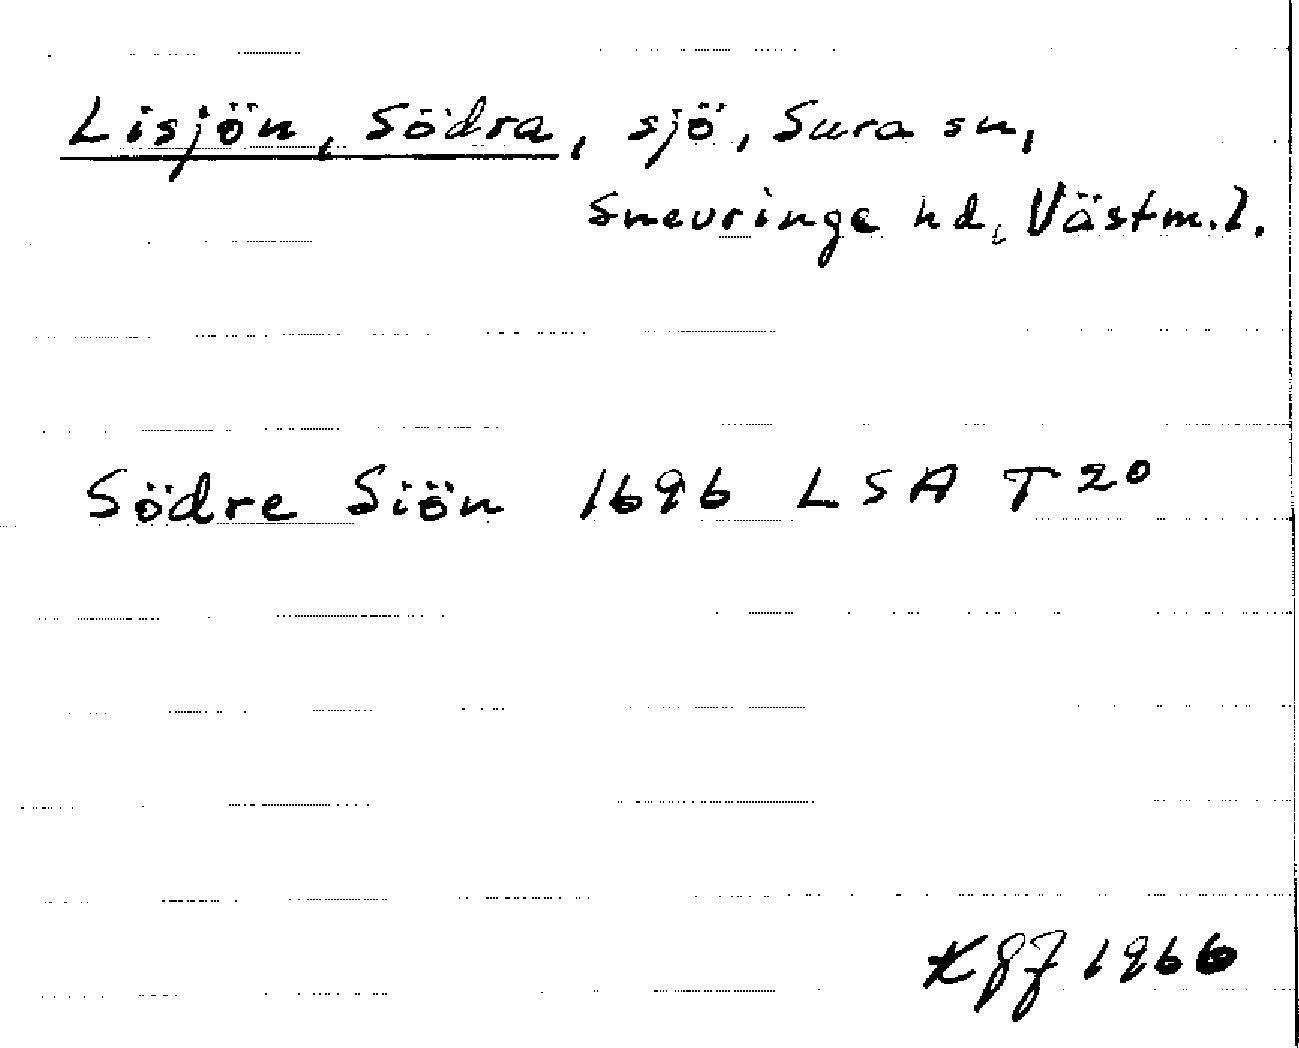 Lisjön, Södra, sjö, Sura sn,
Snevringe hd, Västm.l.
Södre Siön 1696 LSA T20
1966